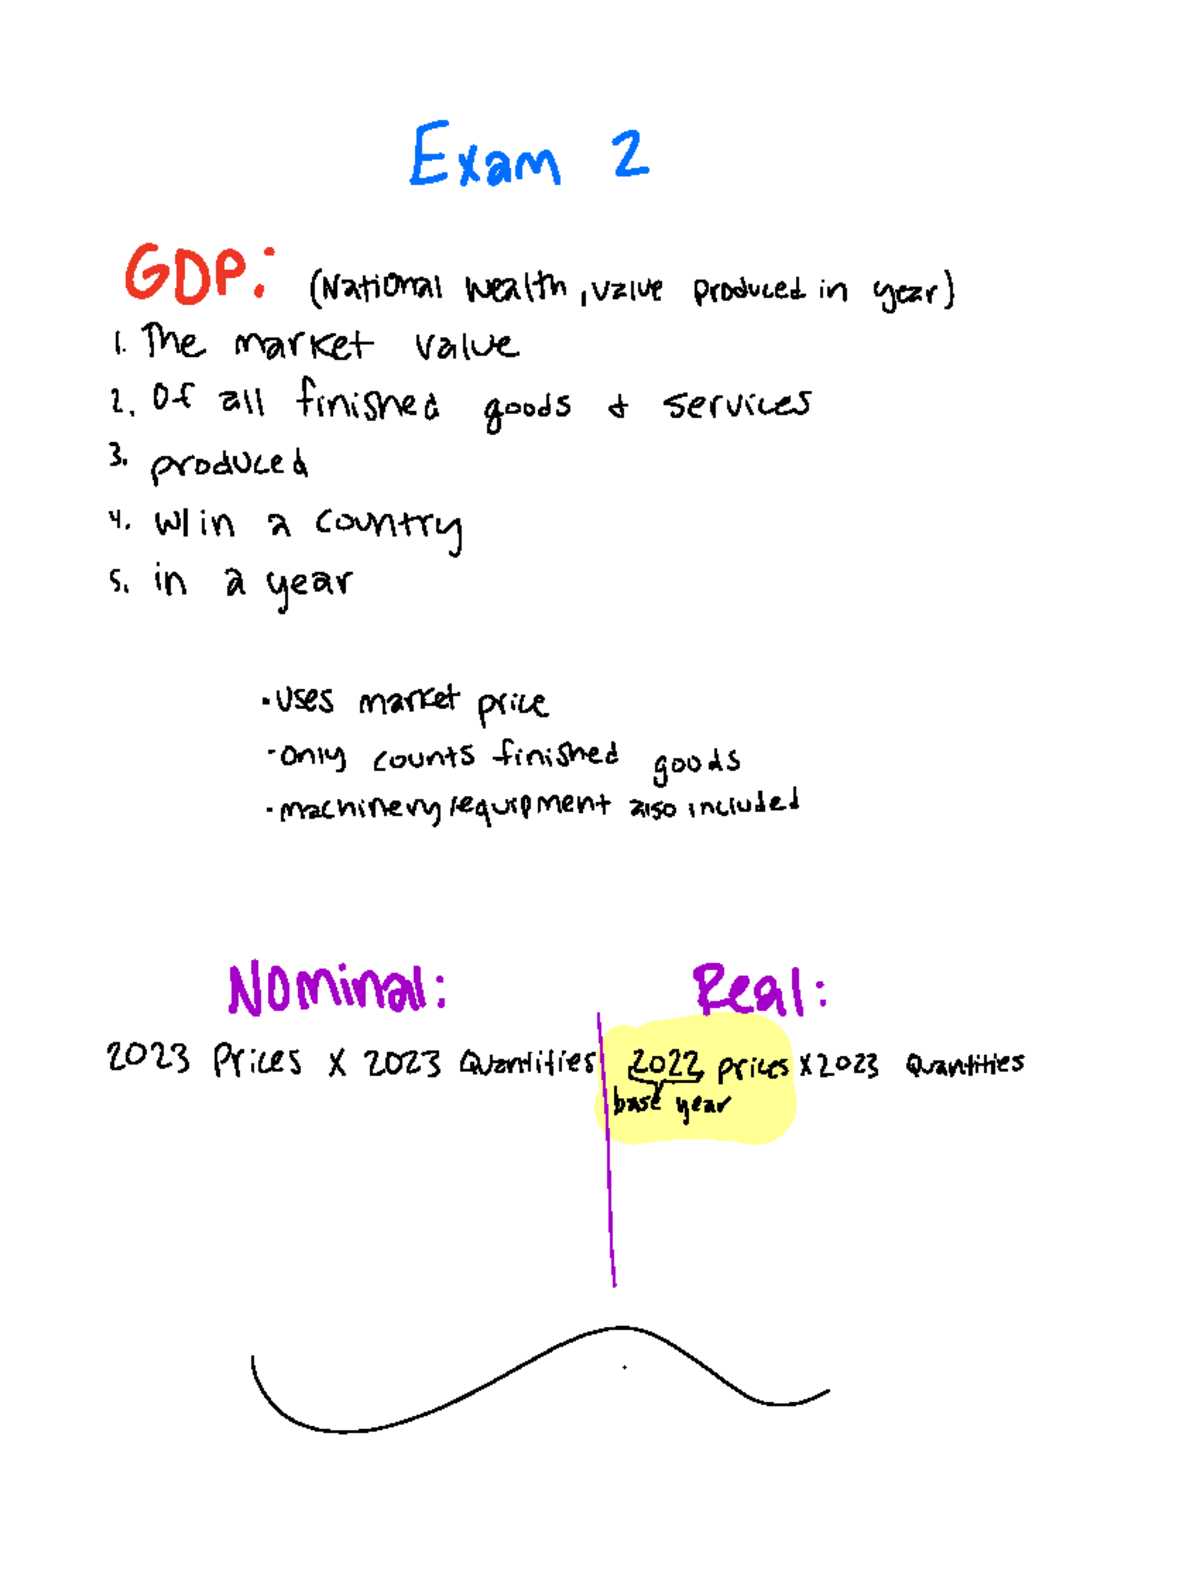 Exam 2
GDP: (National Wealth, value produced in year)
1. The market value
2. Of all finished goods & services
3. produced
4. w/in a country
5. in a year
· uses market price
· only counts finished goods
· machinery/equipment also included
Nominal: Real:
2023 Prices x 2023 Quantities 2022 prices x 2023 Quantities
base year